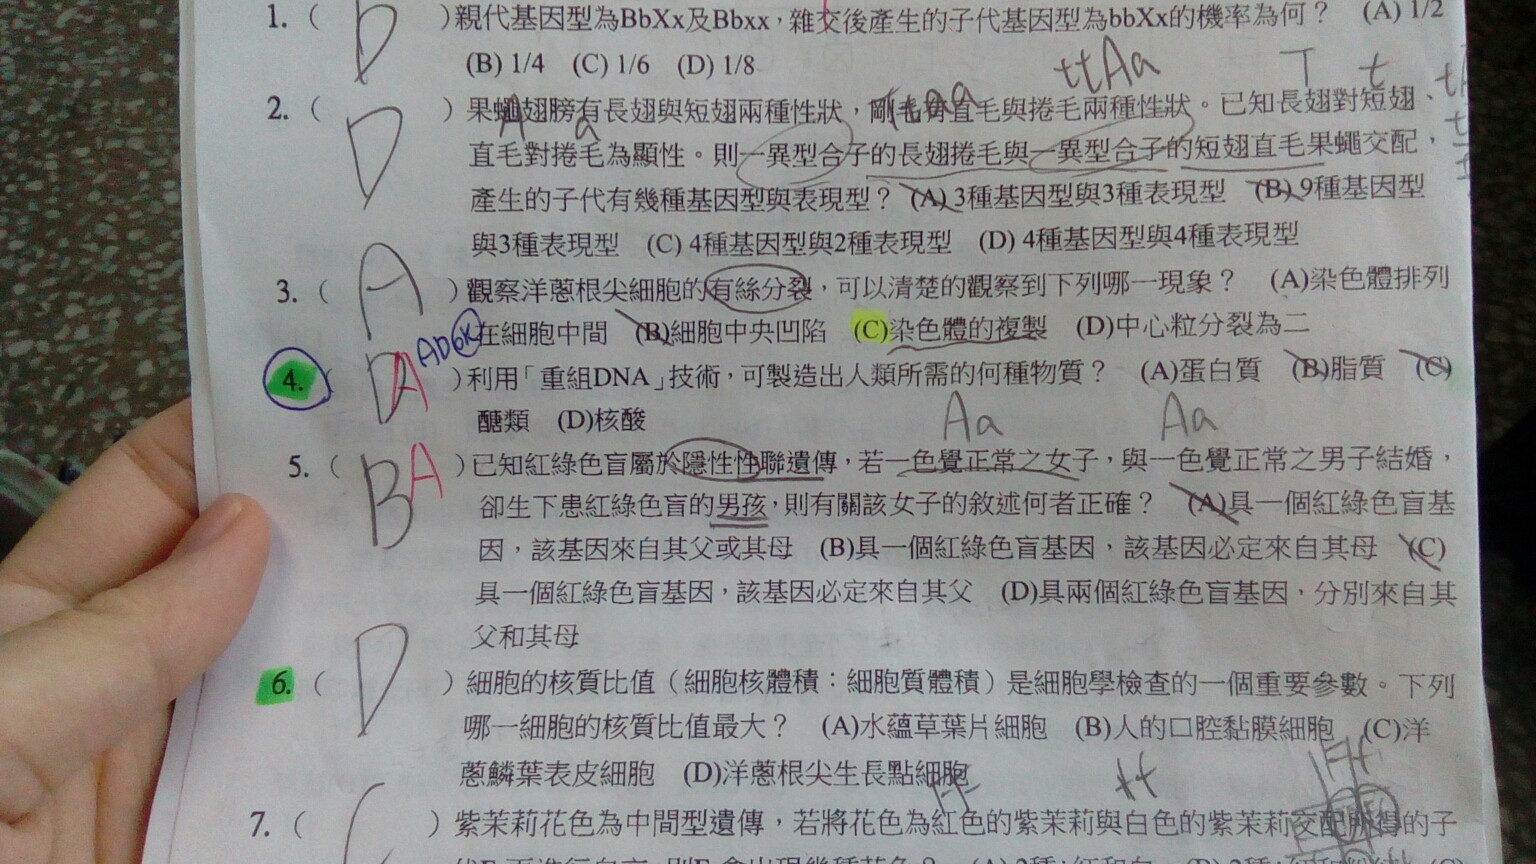 1. ( D )親代基因型為BbXx及Bbxx，雜交後產生的子代基因型為bbXx的機率為何？ (A) 1/2
(B) 1/4 (C) 1/6 (D) 1/8
ttAa T t
2. ( D )果蠅翅膀有長翅與短翅兩種性狀，剛毛有直毛與捲毛兩種性狀。已知長翅對短翅、
A a
直毛對捲毛為顯性。則一異型合子的長翅捲毛與一異型合子的短翅直毛果蠅交配，
產生的子代有幾種基因型與表現型？ (A) 3種基因型與3種表現型 (B) 9種基因型
與3種表現型 (C) 4種基因型與2種表現型 (D) 4種基因型與4種表現型
3. ( A )觀察洋蔥根尖細胞的有絲分裂，可以清楚的觀察到下列哪一現象？ (A)染色體排列
在細胞中間 (B)細胞中央凹陷 (C)染色體的複製 (D)中心粒分裂為二
4. ( D A )利用「重組DNA」技術，可製造出人類所需的何種物質？ (A)蛋白質 (B)脂質 (C)
醣類 (D)核酸
Aa Aa
5. ( B A )已知紅綠色盲屬於隱性性聯遺傳，若一色覺正常之女子，與一色覺正常之男子結婚，
卻生下患紅綠色盲的男孩，則有關該女子的敘述何者正確？ (A)具一個紅綠色盲基
因，該基因來自其父或其母 (B)具一個紅綠色盲基因，該基因必定來自其母 (C)
具一個紅綠色盲基因，該基因必定來自其父 (D)具兩個紅綠色盲基因，分別來自其
父和其母
6. ( D )細胞的核質比值（細胞核體積：細胞質體積）是細胞學檢查的一個重要參數。下列
哪一細胞的核質比值最大？ (A)水蘊草葉片細胞 (B)人的口腔黏膜細胞 (C)洋
蔥鱗葉表皮細胞 (D)洋蔥根尖生長點細胞
tt
7. ( )紫茉莉花色為中間型遺傳，若將花色為紅色的紫茉莉與白色的紫茉莉交配所得的子